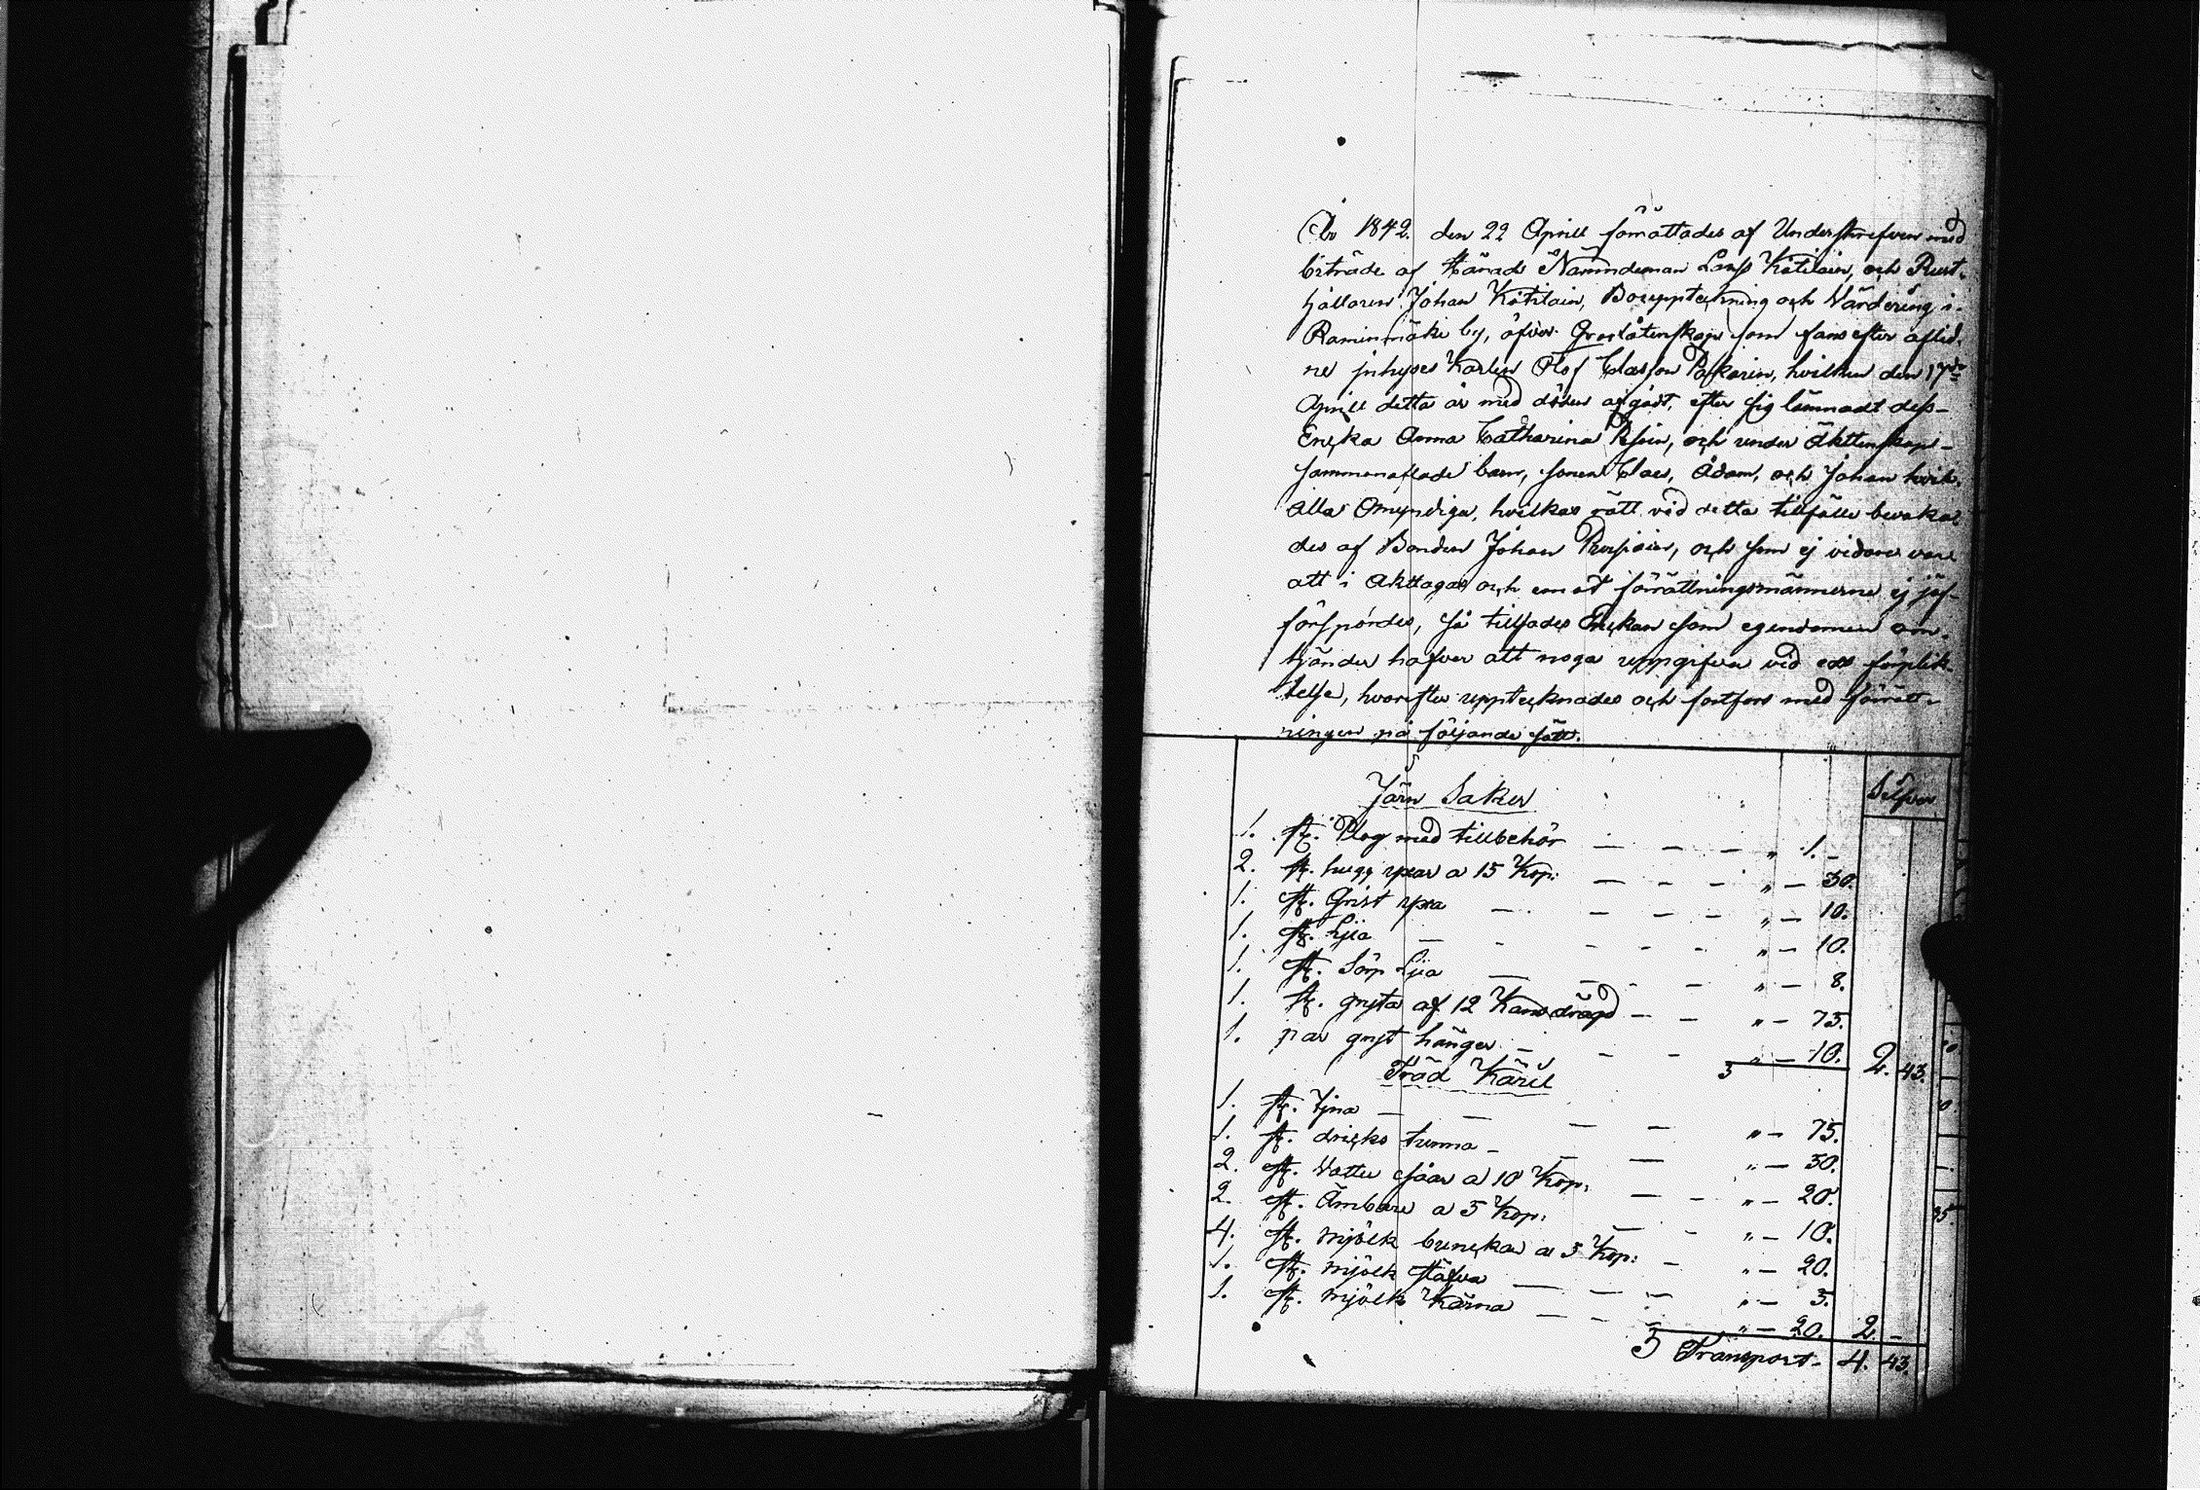 År 1842. den 22 Aprill förrättades af Underskrefven med
biträde af Härads Nämndeman Lars Kötilain, och Rust-
hållaren Johan Kötilain, Bouppteckning och Värdering i
Raminmäki by, öfver Qvarlåtenskap som fans efter aflid-
ne inhyses Karlen Olof Classon Paskarin, hvilken den 17de
Aprill detta år med döden afgådt, efter sig lämnadt dess
Encka Anna Catharina och under Äktenskapi
sammanaflade barn, sonen Claes, Adam, och Johan hvil-
alla Omyndiga, hvilkas rätt vid detta tillfälle bevaka-
des af Bonden Johan och som ej vidare var
att i Akttaga och emot förrättningsmännerne ej jäf
förspordes, så tillsades Enckan som egendomen om-
händer hafver att noga uppgifva vid eds förplik-
telse, hvarefter upptecknades och fortfors med förrätt-
ningen på följande sätt.
Silfver
Järn Saker
1. st. Plog med tillbehör — — — " 1. -
2. st. hugg yxar a 15 Kop: — — — " — 30.
1. st. Qvist yxa — — — — " — 10.
1. st. Ljia — - - - - " — 10.
1. st. Sörp Ljia — — - — " — 8.
1. st. gryta af 12 Kans drägd — — " — 75.
1. par gryt hänger — - - " — 10. 2. 43.
Träd Käril
1. st. Tjna — — — — " — 75.
1. st. dricks tunna — — — " — 50.
2. st. Vatten såar a 10 Kop: — — " — 20.
2. st. Ämbare a 5 Kop: — - " — 10.
4. st. mjölk bunckar a 5 Kop: — " — 20.
1. st. mjölk stäfva — — — " — 5.
1. st. mjölk Kärna — — — " — 20. 2. —
Transport. 4. 43.